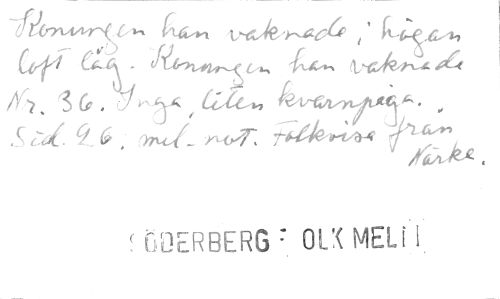 Konungen han vaknade, i högan
loft låg. Konungen han vaknade
Nr. 36. Inga, liten kvarnpiga.
Sid. 26. mel-not. Folkvisa från
Närke.
ÖDERBERG: OLK MEL